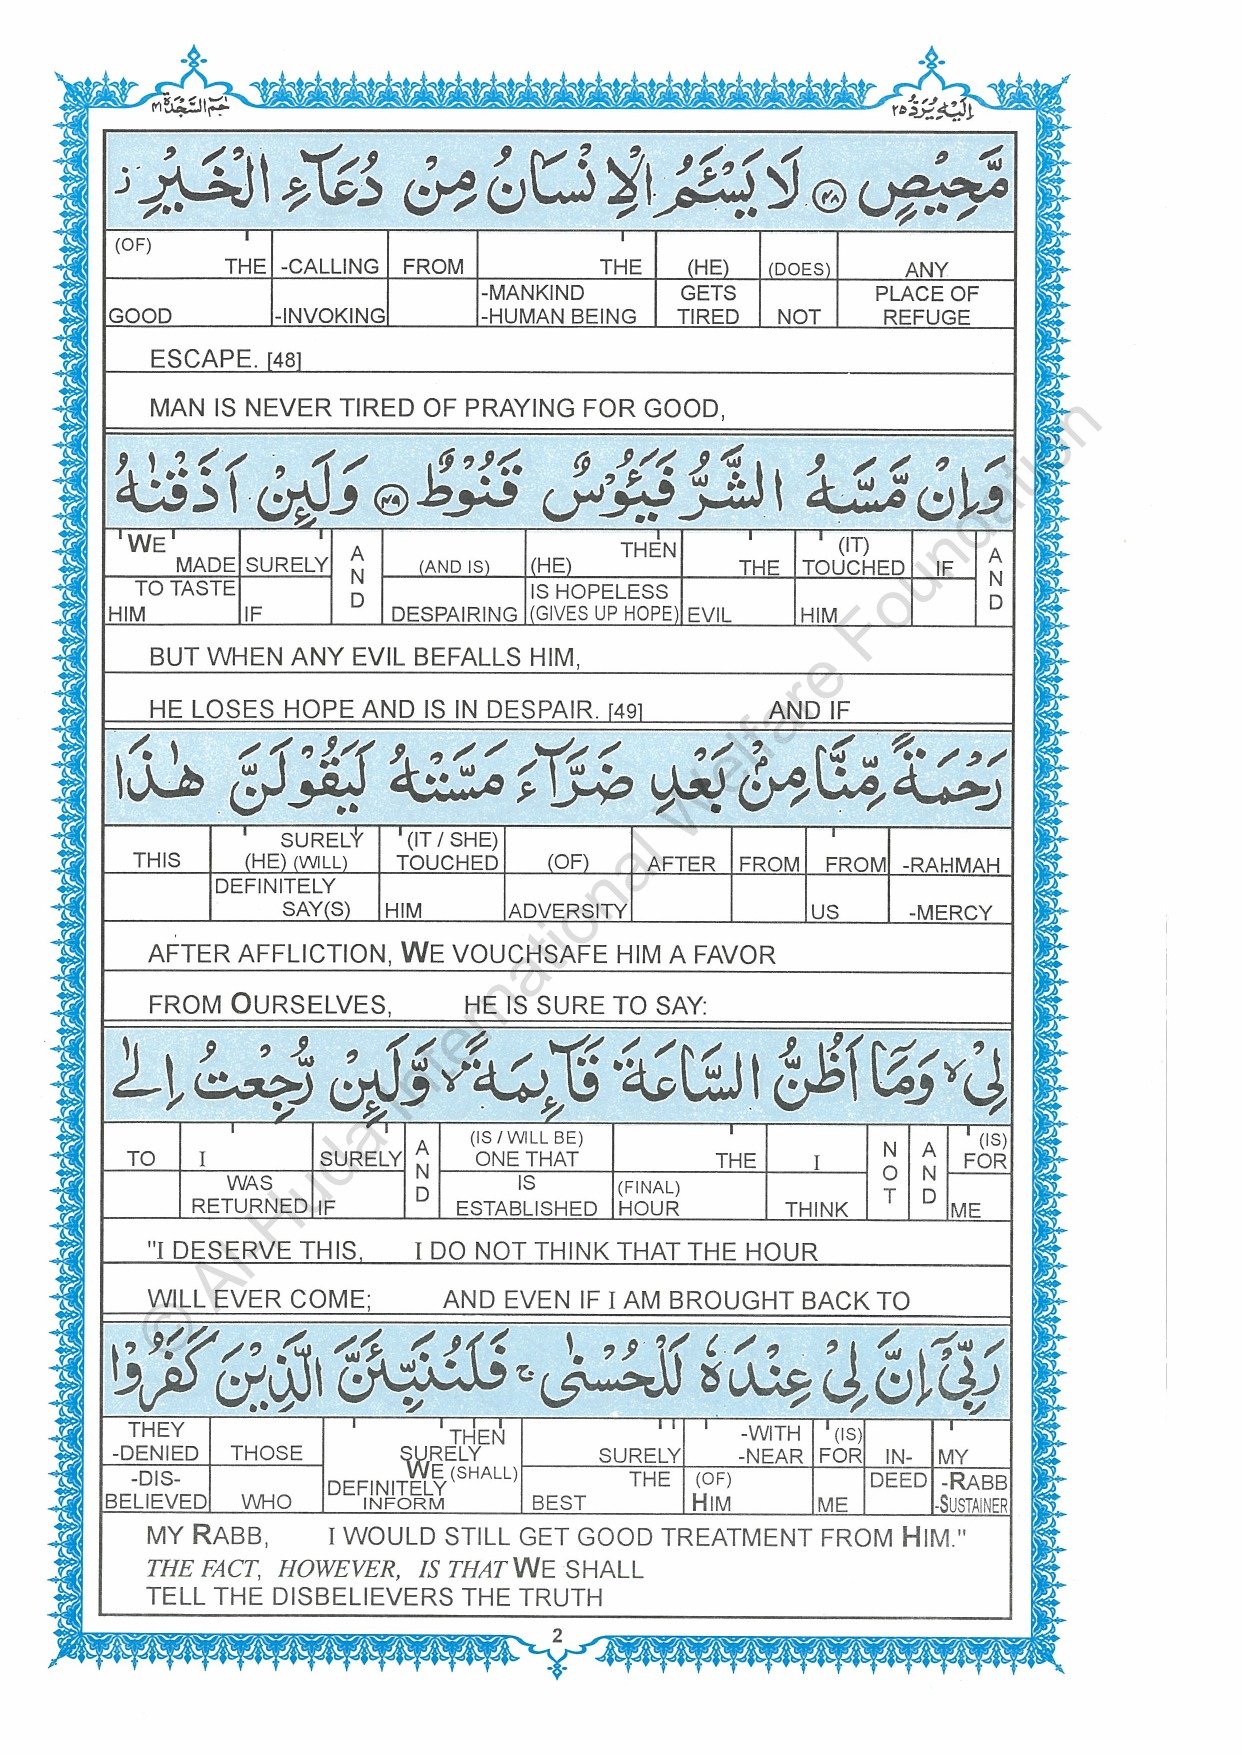 حٰمٓ السَّجْدَة ۴۱
اِلَيْهِ يُرَدُّ ۲۵
مَّحِيْصٍ ۴۸ لَا يَسْـَٔمُ الْاِنْسَانُ مِنْ دُعَآءِ الْخَيْرِ ز
(OF) THE -CALLING FROM THE (HE) (DOES) ANY
GOOD -INVOKING -MANKIND -HUMAN BEING GETS TIRED NOT PLACE OF REFUGE
ESCAPE. [48]
MAN IS NEVER TIRED OF PRAYING FOR GOOD,
وَاِنْ مَّسَّهُ الشَّرُّ فَيَـُٔوْسٌ قَنُوْطٌ ۴۹ وَلَئِنْ اَذَقْنٰهُ
WE MADE SURELY AND (AND IS) (HE) THEN THE (IT) TOUCHED IF AND
TO TASTE HIM IF DESPAIRING IS HOPELESS (GIVES UP HOPE) EVIL HIM
BUT WHEN ANY EVIL BEFALLS HIM,
HE LOSES HOPE AND IS IN DESPAIR. [49] AND IF
رَحْمَةً مِّنَّا مِنْۢ بَعْدِ ضَرَّآءَ مَسَّتْهُ لَيَقُوْلَنَّ هٰذَا
THIS SURELY (HE) (WILL) (IT / SHE) TOUCHED (OF) AFTER FROM FROM -RAHMAH
DEFINITELY SAY(S) HIM ADVERSITY US -MERCY
AFTER AFFLICTION, WE VOUCHSAFE HIM A FAVOR
FROM OURSELVES, HE IS SURE TO SAY:
لِيْ لا وَمَآ اَظُنُّ السَّاعَةَ قَآئِمَةً لا وَّلَئِنْ رُّجِعْتُ اِلٰى
TO I SURELY AND (IS / WILL BE) ONE THAT THE I NOT AND (IS) FOR
WAS RETURNED IF IS ESTABLISHED (FINAL) HOUR THINK ME
"I DESERVE THIS, I DO NOT THINK THAT THE HOUR
WILL EVER COME; AND EVEN IF I AM BROUGHT BACK TO
رَبِّيْٓ اِنَّ لِيْ عِنْدَهٗ لَلْحُسْنٰى ج فَلَنُنَبِّئَنَّ الَّذِيْنَ كَفَرُوْا
THEY -DENIED THOSE THEN SURELY WE (SHALL) SURELY -WITH -NEAR (IS) FOR IN- MY
-DIS-BELIEVED WHO DEFINITELY INFORM BEST THE (OF) HIM ME DEED -RABB -SUSTAINER
MY RABB, I WOULD STILL GET GOOD TREATMENT FROM HIM."
THE FACT, HOWEVER, IS THAT WE SHALL
TELL THE DISBELIEVERS THE TRUTH
2
© Al-Huda International Welfare Foundation